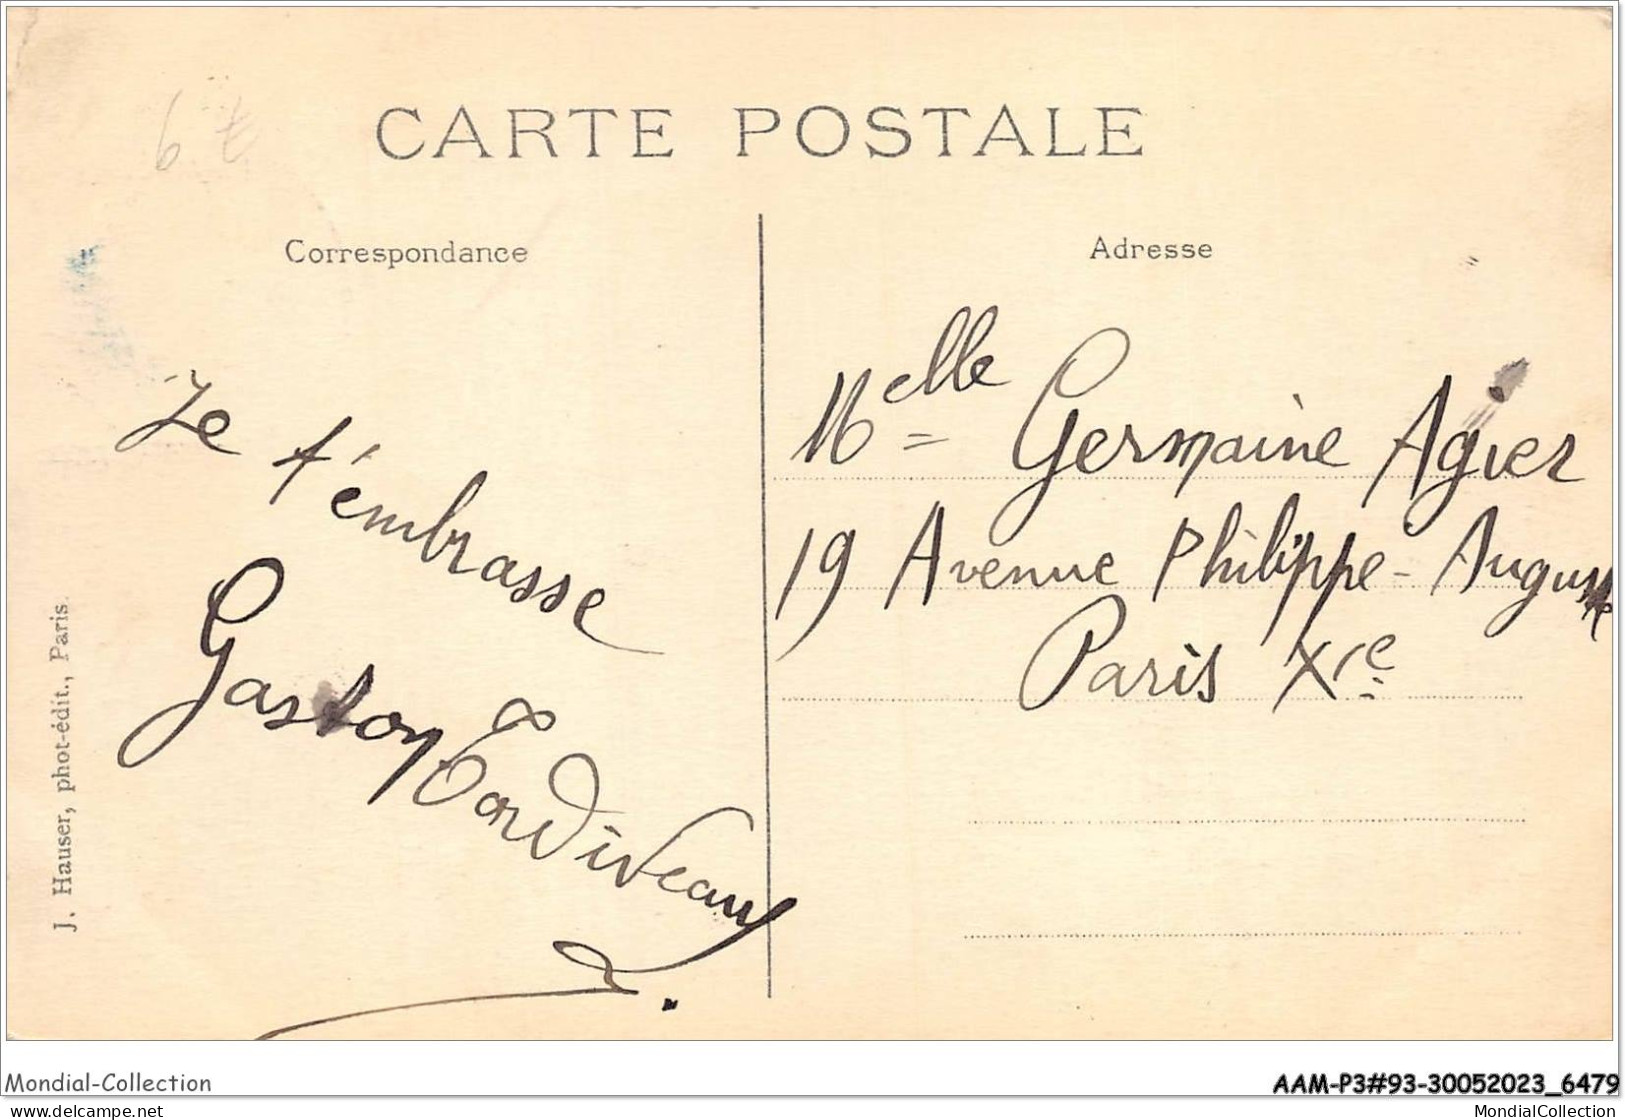 CARTE POSTALE
Correspondance
Je t'embrasse
Gaston Tardiveau
J. Hauser, phot-édit., Paris.
Adresse
Melle Germaine Agier
19 Avenue Philippe-Auguste
Paris XIe
Mondial-Collection
AAM-P3#93-30052023_6479
delcampe.net
MondialCollection